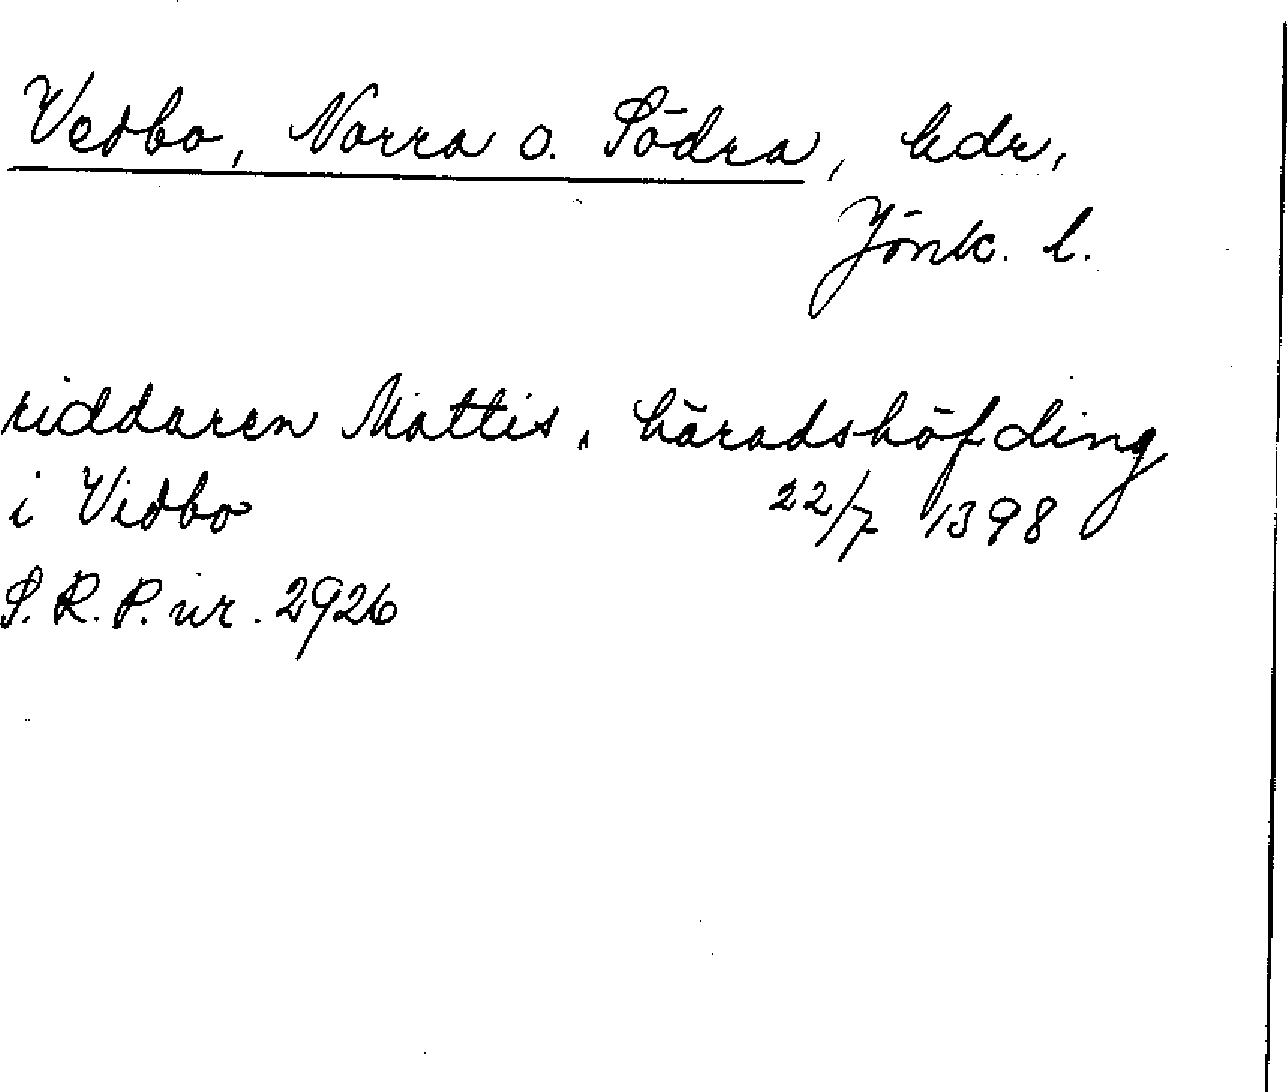 Vedbo, Norra o. Södra, hdr,
Jönk. l.
riddaren Mattis, häradshöfding
i Vidbo 22/7 1398
S.R.P. nr. 2926